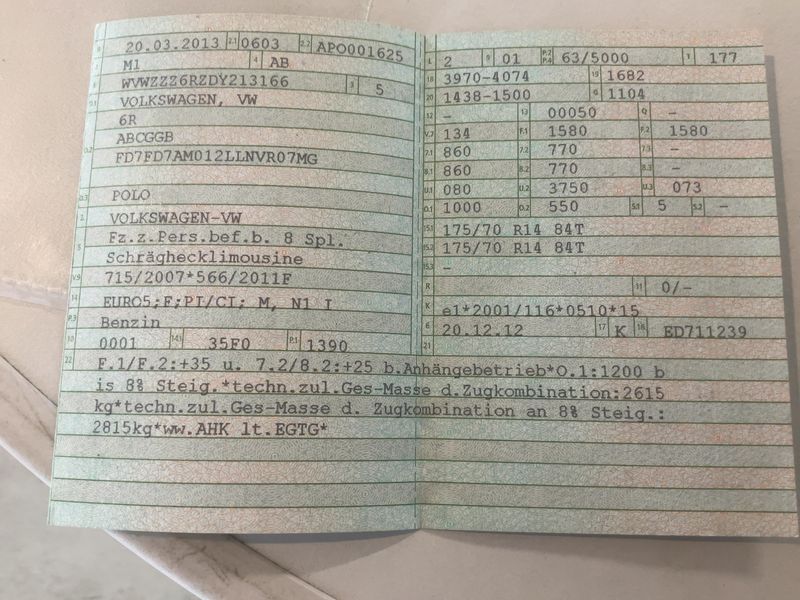 B 20.03.2013 2.1 0603 2.2 APO001625
J M1 4 AB
E WVWZZZ6RZDY213166 3 5
D.1 VOLKSWAGEN, VW
6R
ABCGGB
D.2 FD7FD7AM012LLNVR07MG
D.3 POLO
2 VOLKSWAGEN-VW
5 Fz.z.Pers.bef.b. 8 Spl.
Schräghecklimousine
V.9 715/2007*566/2011F
14 EURO5;F;PI/CI; M, N1 I
P.3 Benzin
10 0001 14.1 35F0 P.1 1390
L 2 9 01 P.2 P.4 63/5000 T 177
18 3970-4074 19 1682
20 1438-1500 G 1104
12 - 13 00050 Q -
V.7 134 F.1 1580 F.2 1580
7.1 860 7.2 770 7.3 -
8.1 860 8.2 770 8.3 -
U.1 080 U.2 3750 U.3 073
O.1 1000 O.2 550 S.1 5 S.2 -
15.1 175/70 R14 84T
15.2 175/70 R14 84T
15.3 -
R 11 0/-
K e1*2001/116*0510*15
6 20.12.12 17 K 16 ED711239
21
22 F.1/F.2:+35 u. 7.2/8.2:+25 b.Anhängebetrieb*O.1:1200 b
is 8% Steig.*techn.zul.Ges-Masse d.Zugkombination:2615
kg*techn.zul.Ges-Masse d. Zugkombination an 8% Steig.:
2815kg*ww.AHK lt.EGTG*